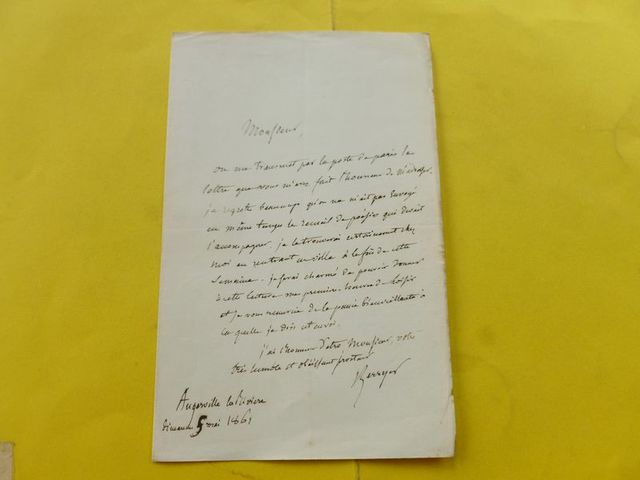 Monsieur,
on me transmet par la poste de paris la
lettre que vous m'avez fait l'honneur de m'adresser.
je regrette beaucoup qu'on ne m'ait pas Envoyé
en même temps le recueil de poësies qui devait
l'accompagner. je le trouverai certainement chez
moi en rentrant en ville à la fin de cette
semaine. je serai charmé de pouvoir donner
à cette lecture ma première heure de loisir
et je vous remercie de la pensée bienveillante à
la quelle je dois cet envoi.
j'ai l'honneur d'être Monsieur, votre
très humble et obéissant
Berryer
Augerville la Rivière
5 mai 1861